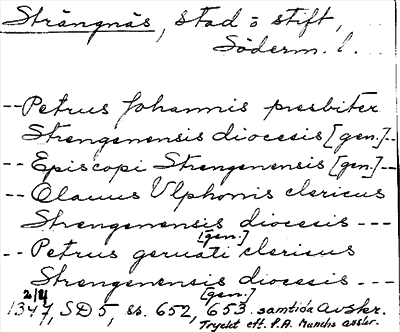 Strängnäs, stad o stift,
Söderm. l.
-- Petrus Johannis presbiter
Strengenensis diocesis [gen.]--
-- Episcopi Strengenensis [gen.]--
-- Olauus Vlphonis clericus
Strengenensis diocesis ---
[gen.]
-- Petrus geruati clericus
Strengenensis diocesis ---
[gen.]
2/4
1347, SD 5, ss. 652, 653. samtida avskr.
Tryckt eft. P.A. Munchs avskr.